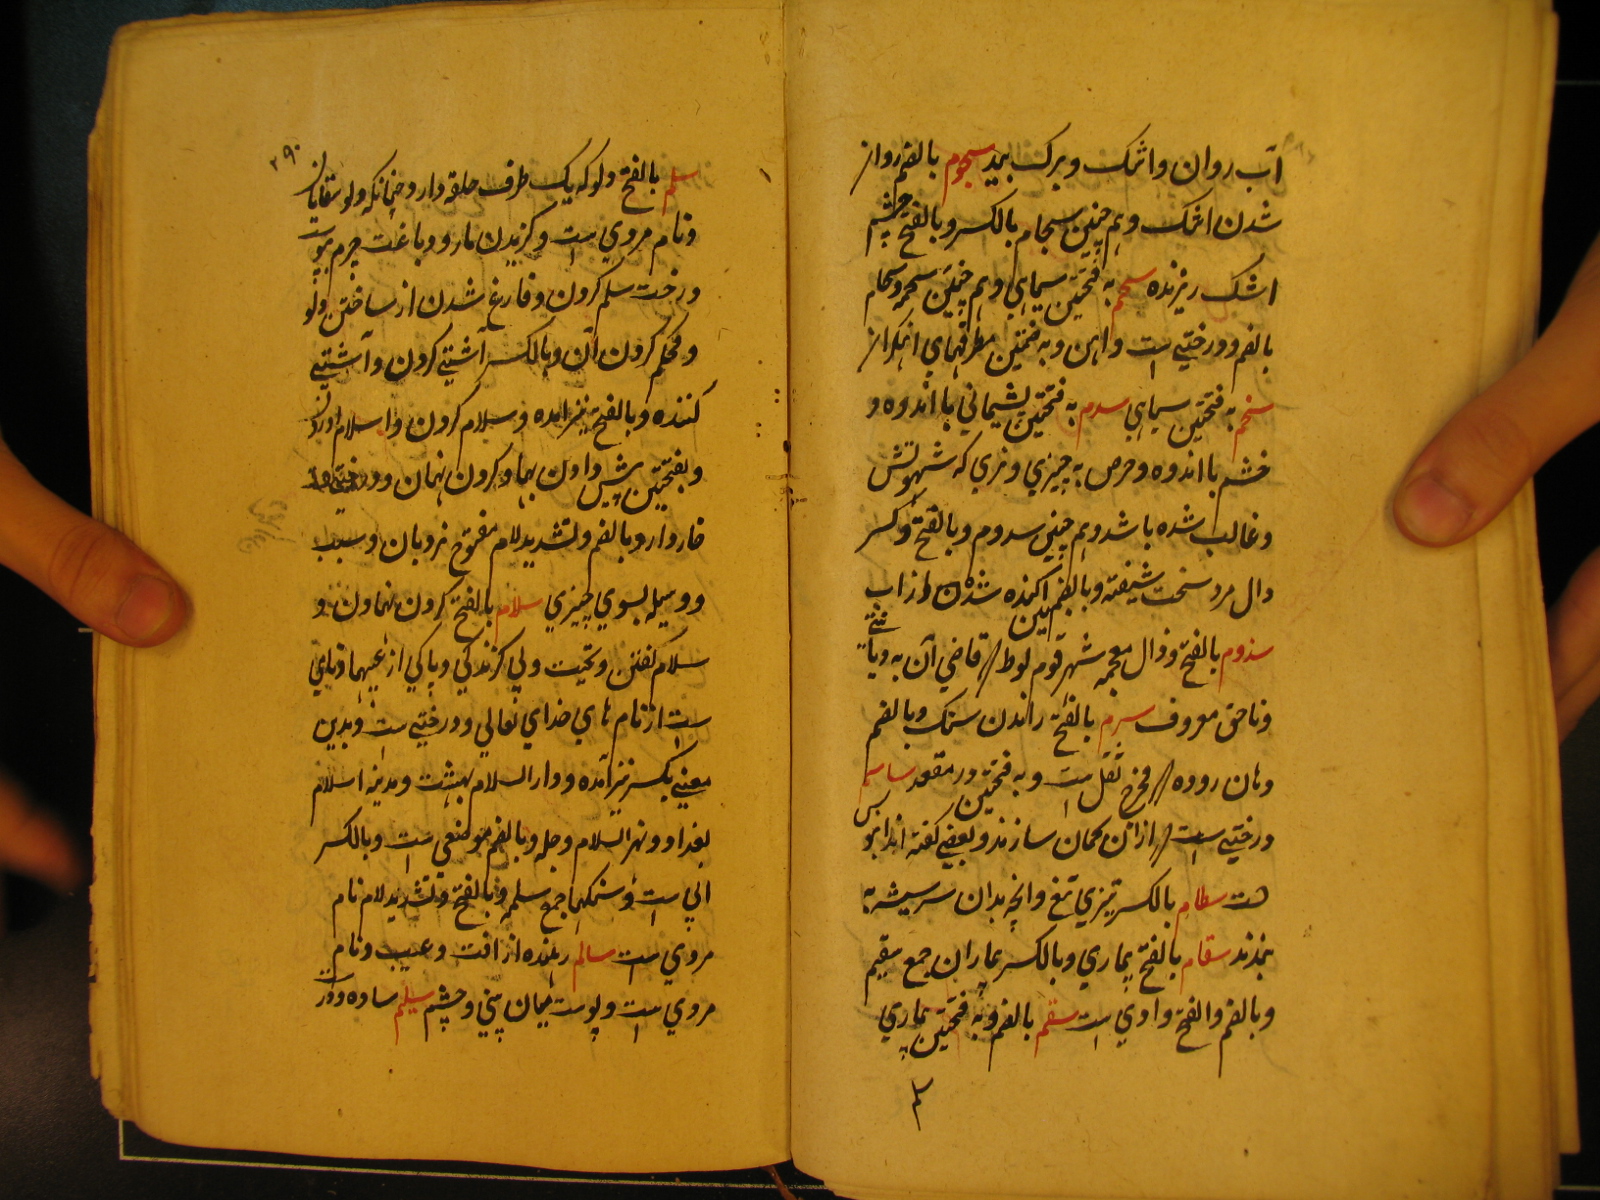 آب روان و اشک و برک بید سجوم بالضم روان
شدن اشک و هم چنین سجام بالکسر و بالفتح چشم
اشک ریزنده سحم به فتحتین سیاهی و هم چنین سحمه و سحام
بالضم و درختی است و آهن و به ضمتین مطرقهای آهنکران
سخم به فتحتین سیاهی سدم به فتحتین پشیمانی با اندوه و
خشم با اندوه و حرص به چیزی و نری که شهوتش
و غالب شده باشد و هم چنین سدوم و بالفتح و کسر
دال مرد سخت شیفته و بالضم اکنده شدن از آب
سذوم بالفتح و ذال معجمه شهر قوم لوط قاضی آن به
و ناحق معروف سرم بالفتح راندن سک و بالضم
دهان روده مخرج ثفل است و به فتحتین درد مقعد ساسم
درختی است از آن کمان سازند و بعضی گفته اند آبنوس
هست سطام بالکسر تیزی تیغ و آنچه بدان سر شیشه به
بندند سقام بالفتح بیماری و بالکسر بیماران جمع سقیم
و بالضم و الفتح وادی است سقم بالضم و به فتحتین بیماری
سلم
۲۹۰
سلم بالفتح دلو که یک طرف حلقه دارد چنانکه دلو سقایان
و نام مردی است و گزیدن مار و دباغت چرم بپوست
درخت سلم کردن و فارغ شدن از ساختن دلو
و محکم کردن آن و بالکسر آشتی کردن و آشتی
کننده و بالفتح نیز آمده و سلام کردن و اسلام آوردن
و بفتحتین پیش دادن بها و کردن نهادن و درختی
خاردار و بالضم و تشدید لام مفتوح نردبان و سبب
و وسیله بسوی چیزی سلام بالفتح کردن نهادن و
سلام گفتن و تحیت و بی گزندگی و پاکی از عیبها و نامی
است از نام های خدای تعالی و درختی است و بدین
معنی بکسر نیز آمده و دار السلام بهشت و مدینه السلام
بغداد و نهر السلام دجله و بالضم موضعی است و بالکسر
آبی است و سنکها جمع سلمه و بالفتح و تشدید لام نام
مردی است سالم رهنده از آفت و عیب و نام
مردی است و پوست میان بینی و چشم سلیم ساده و درست